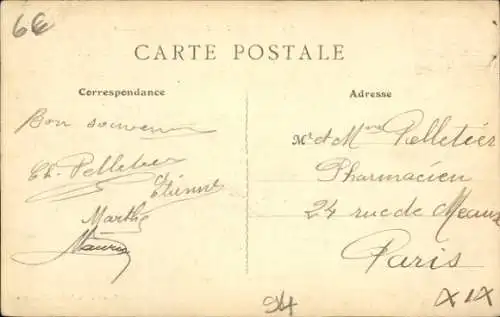 6€
CARTE POSTALE
Correspondance
Bon souvenir
Ch. Pelletier
Étienne
Marthe
Maurice
Adresse
Mr et Mme Pelletier
Pharmacien
24 rue de Meaux
Paris
94
XIX